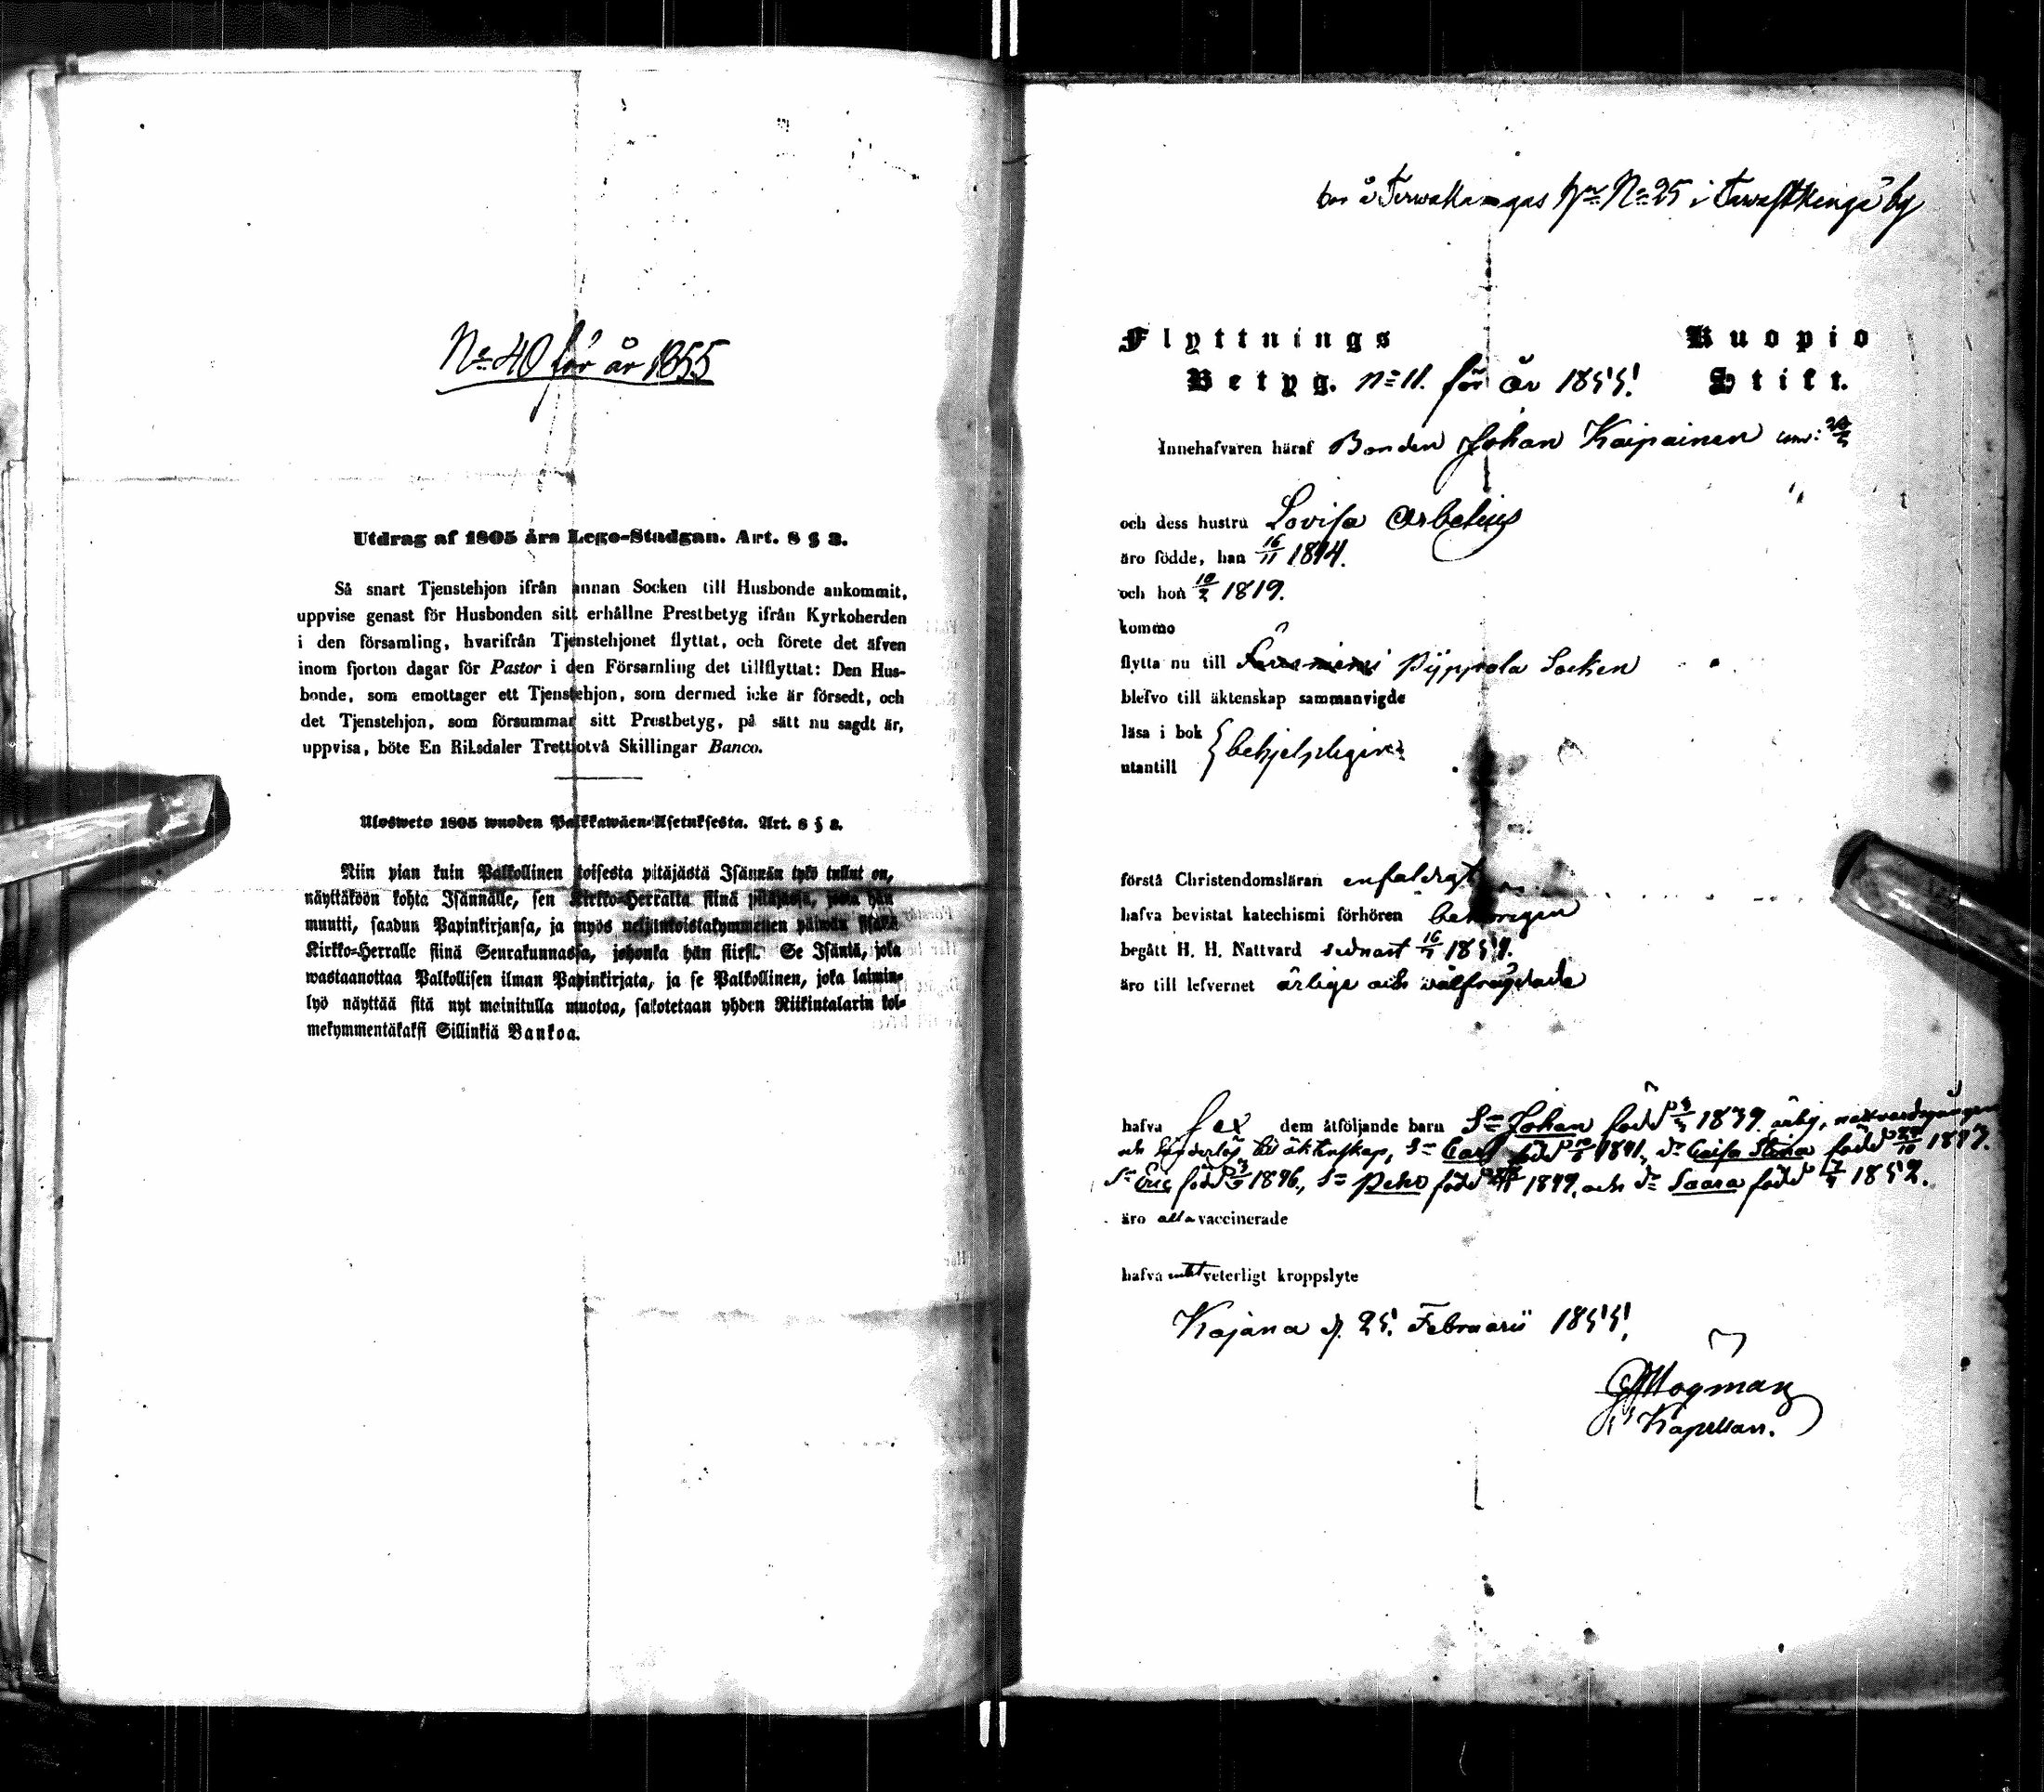 No 40 för år 1855
Utdrag af 1805 års Lego-Stadgan. Art. 8 § 3.
Så snart Tjenstehjon ifrån annan Socken till Husbonde ankommit,
uppvise genast för Husbonden sitt erhållne Prestbetyg ifrån Kyrkoherden
i den församling, hvarifrån Tjenstehjonet flyttat, och förete det äfven
inom fjorton dagar för Pastor i den Församling det tillflyttat: Den Hus-
bonde, som emottager ett Tjenstehjon, som dermed icke är försedt, och
det Tjenstehjon, som försummar sitt Prestbetyg, på sätt nu sagdt är,
uppvisa, böte En Riksdaler Trettjotvå Skillingar Banco.
Ulosweto 1805 wuoden Palkkawäen-Asetuksesta. Art. 8 § 3.
Niin pian kuin Palkollinen toisesta pitäjästä Isännän tykö tullut on,
näyttäköön kohta Isännälle, sen Kirkko-Herralta siinä pitäjässä, josta hän
muutti, saadun Papinkirjansa, ja myös neljäntoistakymmenen päiwän sisällä
Kirkko-Herralle siinä Seurakunnassa, johonka hän siirsi. Se Isäntä, jola
wastaanottaa Palkollisen ilman Papinkirjata, ja se Palkollinen, joka laimin-
lyö näyttää sitä nyt mainitulla muotoa, sakotetaan yhden Riikintalarin kol-
mekymmentäkaksi Sillinkiä Bankoa.
bor å Terwakangas No 25 i by
Flyttnings Kuopio
Betyg. No 11. för år 1855. Stift.
Innehafvaren häraf Bonden Johan Kaipainen
och dess hustru Lovisa
äro födde, han 16/11 1814.
och hon 10/2 1819.
kommo
flytta nu till Pyppola Socken
blefvo till äktenskap sammanvigde
läsa i bok
utantill } behjelpligen
förstå Christendomsläran enfaldigt
hafva bevistat katechismi förhören behörigen
begått H. H. Nattvard sednast
äro till lefvernet ärlige och wälfrägdade
hafva sex dem åtföljande barn Sn Johan född 1839. nattvardsgången
och hinderlös till äktenskap, Sn Carl född 1841, Dr Caisa Stina född
Sn Eric född 1846., Sn Petro född 1849, och Dr Saara född 1852.
äro alla vaccinerade
hafva intet veterligt kroppslyte
Kajana d. 25. Februarii 1855.
Högman
Kapellan.